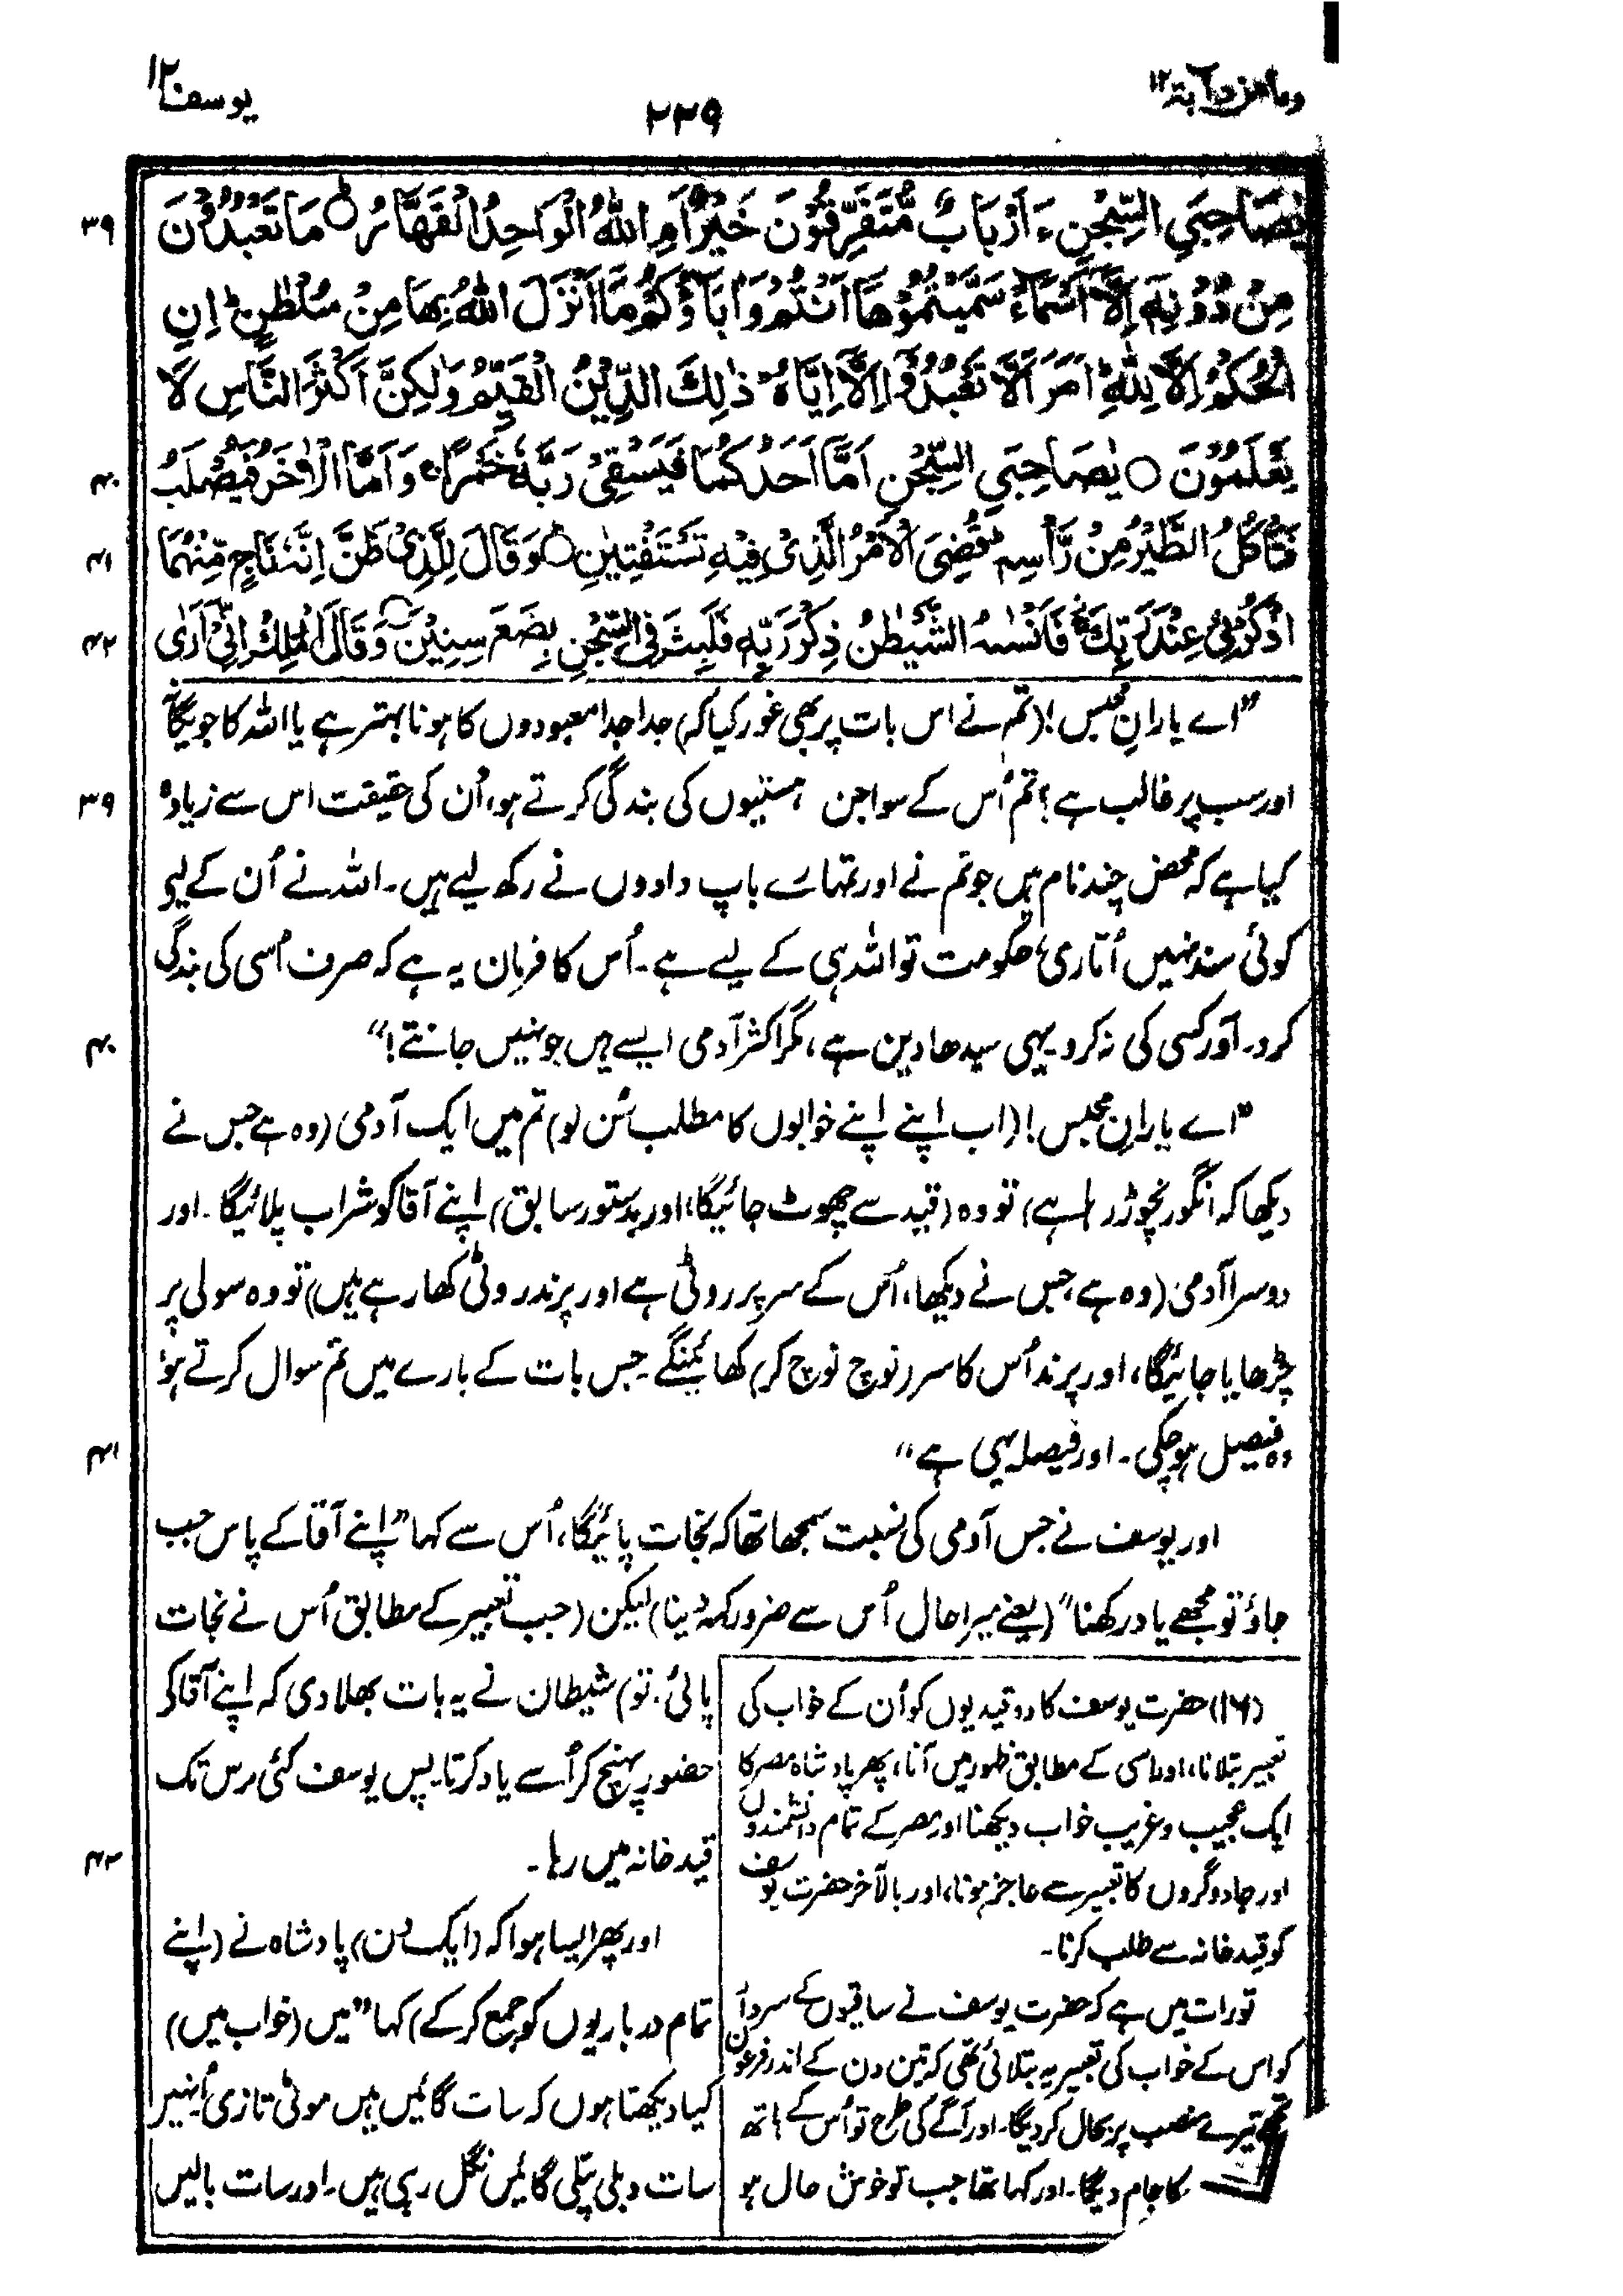 وما من دآبة ۱۲
۲۳۹
یوسف ۱۲
یٰصَاحِبَیِ السِّجْنِ ءَاَرْبَابٌ مُّتَفَرِّقُوْنَ خَیْرٌ اَمِ اللّٰهُ الْوَاحِدُ الْقَهَّارُ ○ مَا تَعْبُدُوْنَ ۳۹
مِنْ دُوْنِهٖۤ اِلَّاۤ اَسْمَآءً سَمَّیْتُمُوْهَاۤ اَنْتُمْ وَ اٰبَآؤُكُمْ مَّاۤ اَنْزَلَ اللّٰهُ بِهَا مِنْ سُلْطٰنٍ ؕ اِنِ
الْحُكْمُ اِلَّا لِلّٰهِ ؕ اَمَرَ اَلَّا تَعْبُدُوْۤا اِلَّاۤ اِیَّاهُ ؕ ذٰلِكَ الدِّیْنُ الْقَیِّمُ وَلٰكِنَّ اَكْثَرَ النَّاسِ لَا
یَعْلَمُوْنَ ○ یٰصَاحِبَیِ السِّجْنِ اَمَّاۤ اَحَدُكُمَا فَیَسْقِیْ رَبَّهٗ خَمْرًا ۚ وَ اَمَّا الْاٰخَرُ فَیُصْلَبُ ۴۰
فَتَاْكُلُ الطَّیْرُ مِنْ رَّاْسِهٖ ؕ قُضِیَ الْاَمْرُ الَّذِیْ فِیْهِ تَسْتَفْتِیٰنِ ○ وَ قَالَ لِلَّذِیْ ظَنَّ اِنَّهٗ نَاجٍ مِّنْهُمَا ۴۱
اذْكُرْنِیْ عِنْدَ رَبِّكَ ؗ فَاَنْسٰىهُ الشَّیْطٰنُ ذِكْرَ رَبِّهٖ فَلَبِثَ فِی السِّجْنِ بِضْعَ سِنِیْنَ ○ وَ قَالَ الْمَلِكُ اِنِّیْۤ اَرٰی ۴۲
”اے یارانِ مجلس! (تم نے اس بات پر بھی غور کیا کہ) جدا جدا معبودوں کا ہونا بہتر ہے یا اللہ کا جو یگانہ
اور سب پر غالب ہے؟ تم اُس کے سوا جن ہستیوں کی بندگی کرتے ہو، اُن کی حقیقت اس سے زیادہ ۳۹
کیا ہے کہ محض چند نام ہیں جو تم نے اور تمہارے باپ دادوں نے رکھ لیے ہیں۔ اللہ نے اُن کے لیے
کوئی سند نہیں اُتاری، حکومت تو اللہ ہی کے لیے ہے۔ اُس کا فرمان یہ ہے کہ صرف اُسی کی بندگی
کرو۔ اَور کسی کی نہ کرو یہی سیدھا دین ہے، مگر اکثر آدمی ایسے ہیں جو نہیں جانتے!“ ۴۰
”اے یارانِ مجلس! (اب اپنے اپنے خوابوں کا مطلب سُن لو) تم میں ایک آدمی (وہ ہے جس نے
دیکھا کہ انگور نچوڑ رہا ہے) تو وہ (قید سے چھوٹ جائیگا، اور بدستور سابق) اپنے آقا کو شراب پلائیگا۔ اور
دوسرا آدمی (وہ ہے جس نے دیکھا، اُس کے سر پر روٹی ہے اور پرند روٹی کھا رہے ہیں) تو وہ سولی پر
چڑھایا جائیگا، اور پرند اُس کا سر (نوچ نوچ کر) کھائینگے۔ جس بات کے بارے میں تم سوال کرتے ہو،
وہ فیصل ہو چکی۔ اور فیصلہ یہی ہے“ ۴۱
اور یوسف نے جس آدمی کی نسبت سمجھا تھا کہ نجات پائیگا، اُس سے کہا ”اپنے آقا کے پاس جب
جاؤ تو مجھے یاد رکھنا“ (یعنے میرا حال اُس سے ضرور کہہ دینا) لیکن (جب تعبیر کے مطابق اُس نے نجات
پائی، تو) شیطان نے یہ بات بھلا دی کہ اپنے آقا کو
حضور پہنچ کر اُسے یاد کرتا۔ پس یوسف کئی برس تک
قید خانہ میں رہا۔ ۴۲
اور پھر ایسا ہوا کہ (ایک دن) پادشاہ نے (اپنے
تمام درباریوں کو جمع کر کے) کہا ”میں (خواب میں)
کیا دیکھتا ہوں کہ سات گائیں ہیں موٹی تازی، اُنہیں
سات دبلی پتلی گائیں نگل رہی ہیں۔ اور سات بالیں
(۱۶) حضرت یوسف کا دو قیدیوں کو اُن کے خواب کی
تعبیر بتلانا، اور اسی کے مطابق ظہور میں آنا، پھر پادشاہ مصر کا
ایک عجیب و غریب خواب دیکھنا اور مصر کے تمام دانشمندوں
اور جادوگروں کا تعبیر سے عاجز ہونا، اور بالآخر حضرت یوسف
کو قید خانہ سے طلب کرنا۔
تورات میں ہے کہ حضرت یوسف نے ساقیوں کے سردار
کو اس کے خواب کی تعبیر یہ بتلائی تھی کہ تین دن کے اندر فرعون
تجھے تیرے منصب پر بحال کر دیگا۔ اور آگے کی طرح تو اُس کے ہاتھ
کا جام دیگا۔ اور کہا تھا جب تو خوش حال ہو